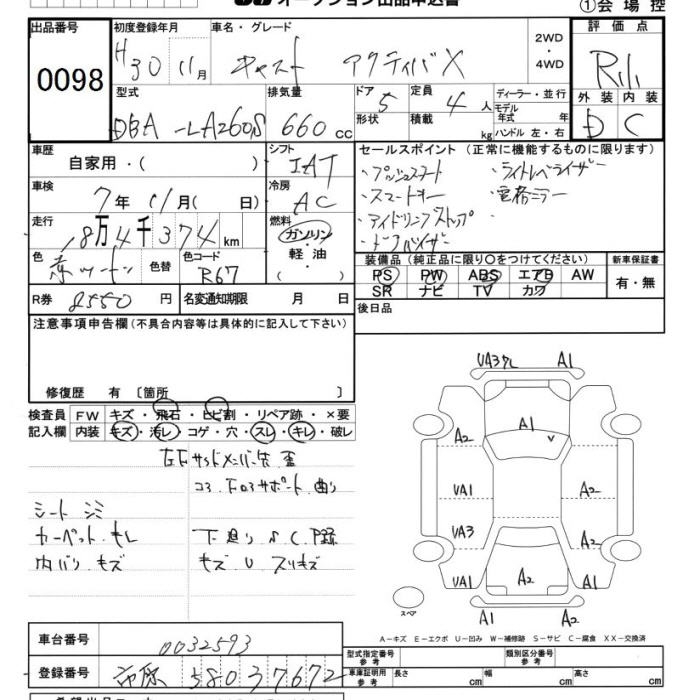 オークション出品申込書
①会場控
出品番号 0098
初度登録年月 H30 11月
車名・グレード キャスト アクティバX
2WD・4WD
評価点 R1
外装 D 内装 C
型式 DBA-LA260S
排気量 660 cc
ドア 5 形状
定員 4 人 積載 kg
ディーラー・並行
モデル年式 年
ハンドル 左・右
車歴 自家用・( )
シフト IAT
車検 7年 11月( 日)
冷房 AC
走行 18万4千374 km
燃料 ガソリン・軽油・( )
色 赤ツートン 色替 色コード R67
R券 8550 円 名変通知期限 月 日
セールスポイント (正常に機能するものに限ります)
・プッシュスタート ・ライトレベライザー
・スマートキー ・電格ミラー
・アイドリングストップ ・
・ドアバイザー
装備品 (純正品に限り〇をつけてください) 新車保証書
PS PW ABS エアB AW 有・無
SR ナビ TV カワ
後日品
注意事項申告欄(不具合内容等は具体的に記入して下さい)
修復歴 有 〔箇所 〕
検査員 FW キズ・飛石・ヒビ割・リペア跡・×要
記入欄 内装 キズ・汚レ・コゲ・穴・スレ・キレ・破レ
左Fサイドメンバー先 歪
コアF ロアサポート 曲り
シート シミ
カーペット キレ 下廻り S C P録
内バリ キズ キズ U スリキズ
VA3ワレ A1
A1
A2
VA1 A2
VA3 A2
VA1 A2 A1
A1 A2
スペア
A-キズ E-エクボ U-凹み W-補修跡 S-サビ C-腐食 XX-交換済
車台番号 0032593
登録番号 市原 580 37672
型式指定番号 参考 類別区分番号 参考
車庫証明用 参考 長さ cm 幅 cm 高さ cm